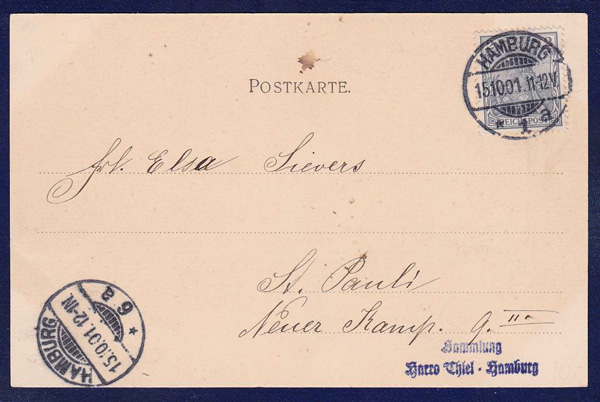 POSTKARTE.
HAMBURG
15.10.01.11-12V.
* 1 a
REICHSPOST
Frl. Elsa Sievers
St. Pauli
Neuer Kamp. 9. IIa
HAMBURG
15.10.01.12-1N
* 6 a
Sammlung
Harro Thiel - Hamburg